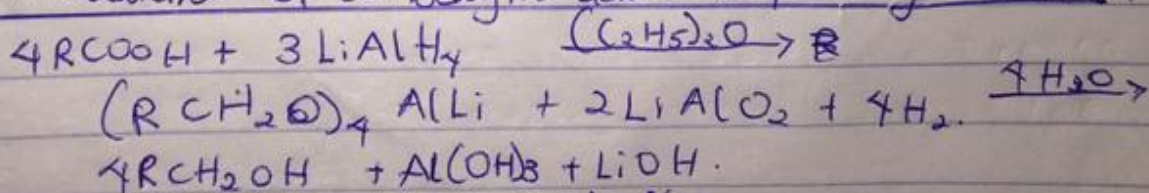 4RCOOH + 3LiAlH4 (C2H5)2O →
(RCH2O)4 AlLi + 2LiAlO2 + 4H2. 4H2O →
4RCH2OH + Al(OH)3 + LiOH.